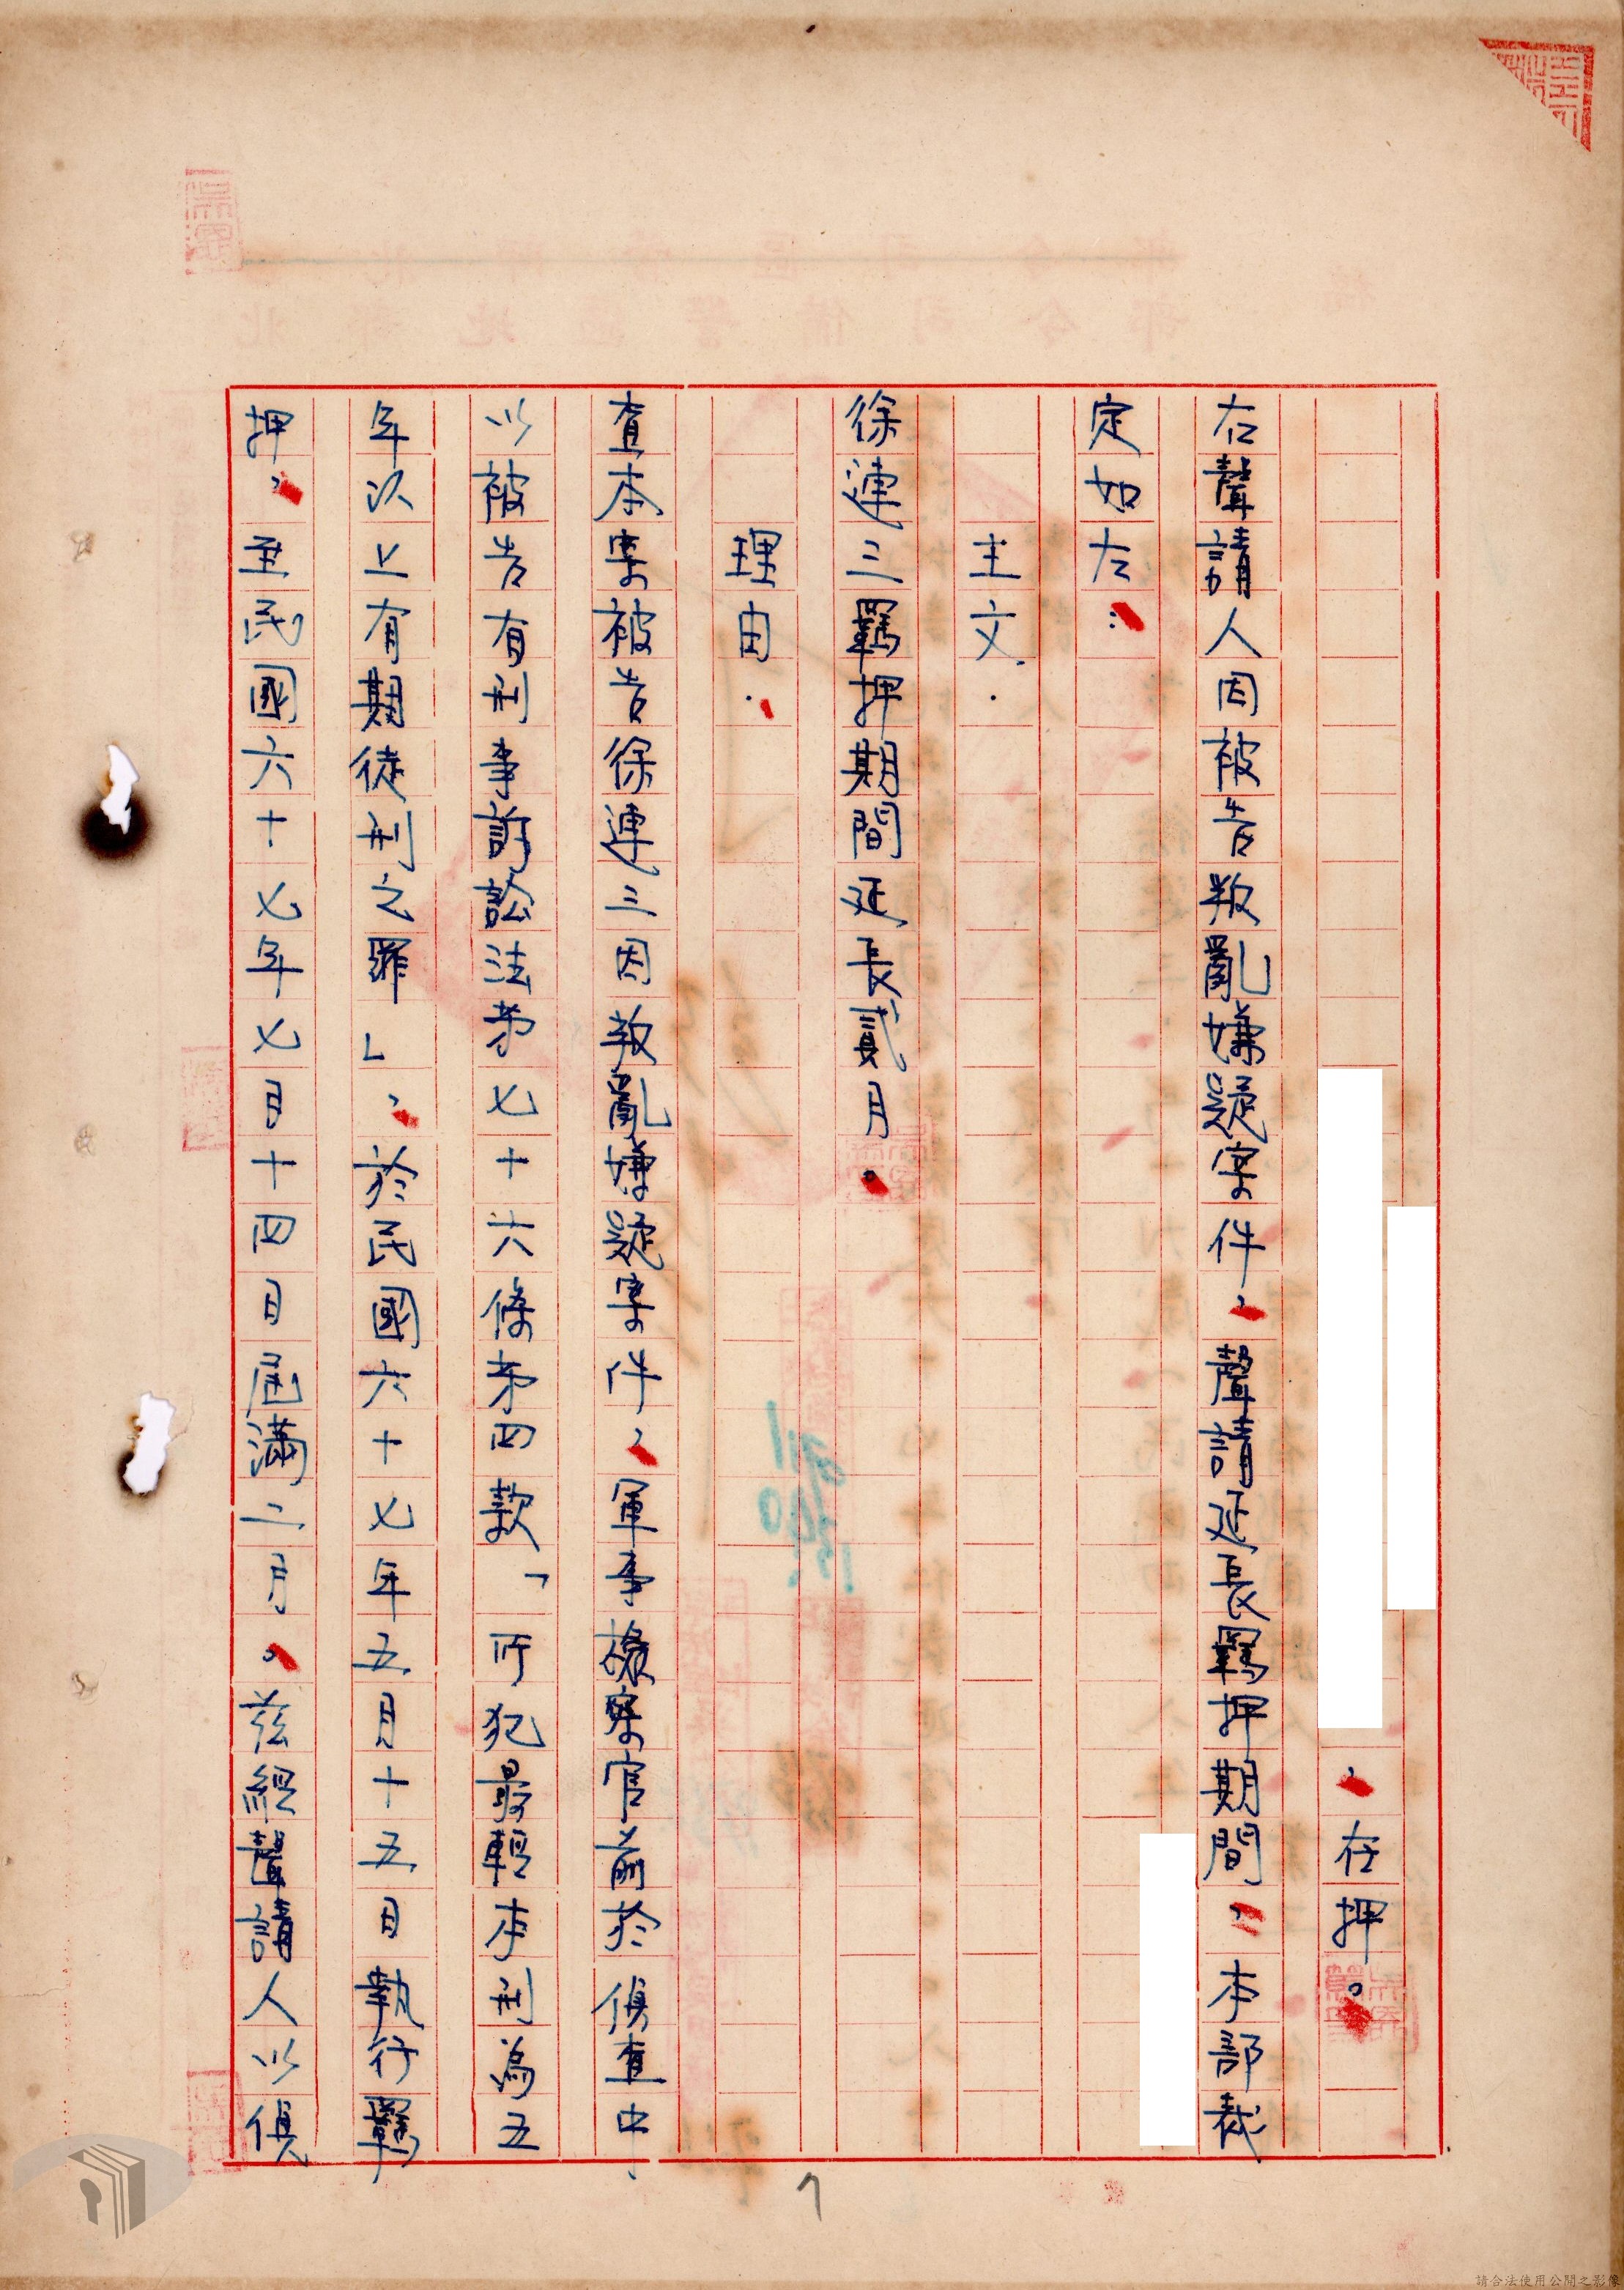 ，在押。
右聲請人因被告叛亂嫌疑案件，聲請延長羈押期間，本部裁
定如左：
主文．
徐連三羈押期間延長貳月。
理由．
查本案被告徐連三因叛亂嫌疑案件，軍事檢察官前於偵查中
以被告有刑事訴訟法第七十六條第四款「所犯最輕本刑為五
年以上有期徒刑之罪」，於民國六十七年五月十五日執行羈
押，至民國六十七年七月十四日屆滿二月。茲經聲請人以偵
7
請合法使用公開之影像